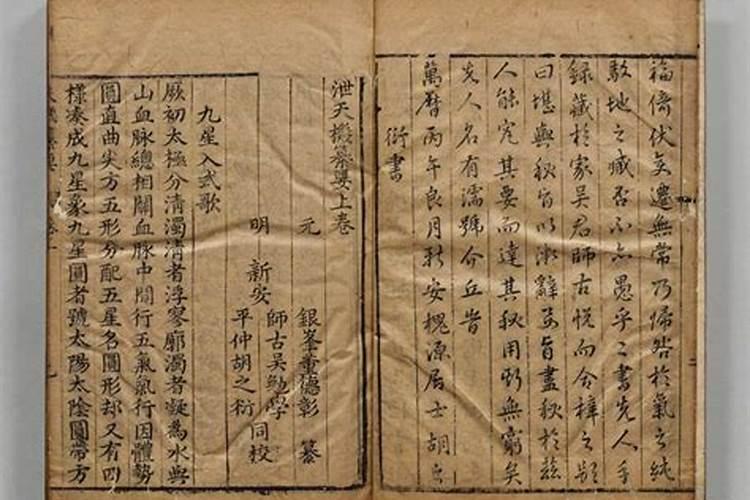 福倚伏矣遷無常乃歸咎於氣之純
駁地之臧否不亦愚乎二書先人手
錄藏於家吳君師古悅而命梓之顏
曰堪輿秘旨以淑辭矣旨盡秘於茲
人能究其要而達其秘用斯無窮矣
先人名有濡號介丘旹
萬曆丙午良月新安槐源居士胡之
衍書
泄天機纂要上卷
元 銀峯董德彰 纂
明 新安 師古吳勉學
平仲胡之衍 同校
九星入式歌
厥初太極分清濁清者浮寥廓濁者凝為水與
山血脉總相關血脉中間行五氣氣行因體勢
圓直曲尖方五形分配五星名圓形却又有四
樣湊成九星象九星圓者號太陽太陰圓帶方